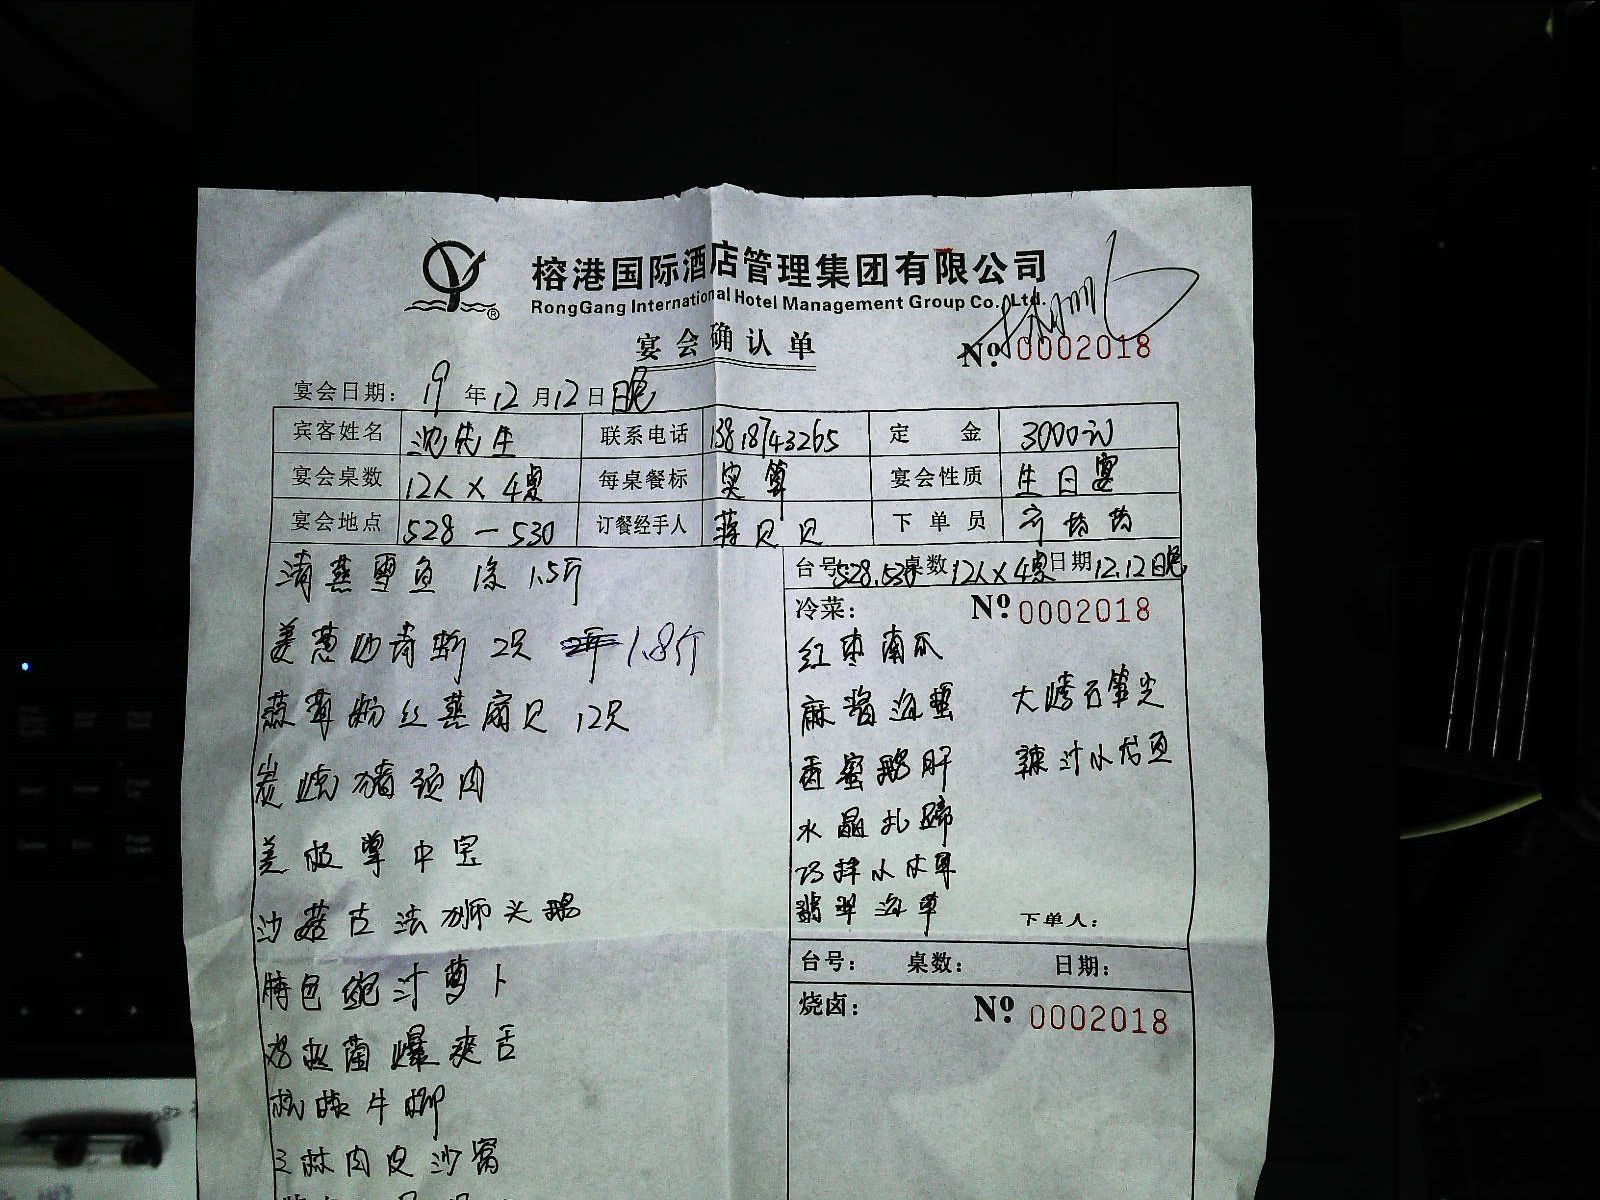 榕港国际酒店管理集团有限公司
RongGang International Hotel Management Group Co., Ltd.
宴会确认单
№ 0002018
宴会日期: 19 年 12 月 12 日 晚
宾客姓名 沈先生 联系电话 13818743265 定金 3000元
宴会桌数 12人×4桌 每桌餐标 实算 宴会性质 生日宴
宴会地点 528-530 订餐经手人 蒋贝贝 下单员
清蒸鳕鱼 1条 1.5斤
姜葱 2只 1.8斤
蒜茸粉丝蒸扇贝 12只
炭烧猪颈肉
美极掌中宝
沙姜古法狮头鹅
特色鲍汁萝卜
鸡枞菌爆爽舌
松露牛柳
三林肉皮沙窝
台号 528.530 桌数 12人×4桌 日期 12.12晚
冷菜: № 0002018
红枣南瓜
麻酱海蜇 大烤石笋尖
香蜜鹅肝 辣汁小龙鱼
水晶扎蹄
巧拌小木耳
翡翠海草 下单人:
台号: 桌数: 日期:
烧卤: № 0002018